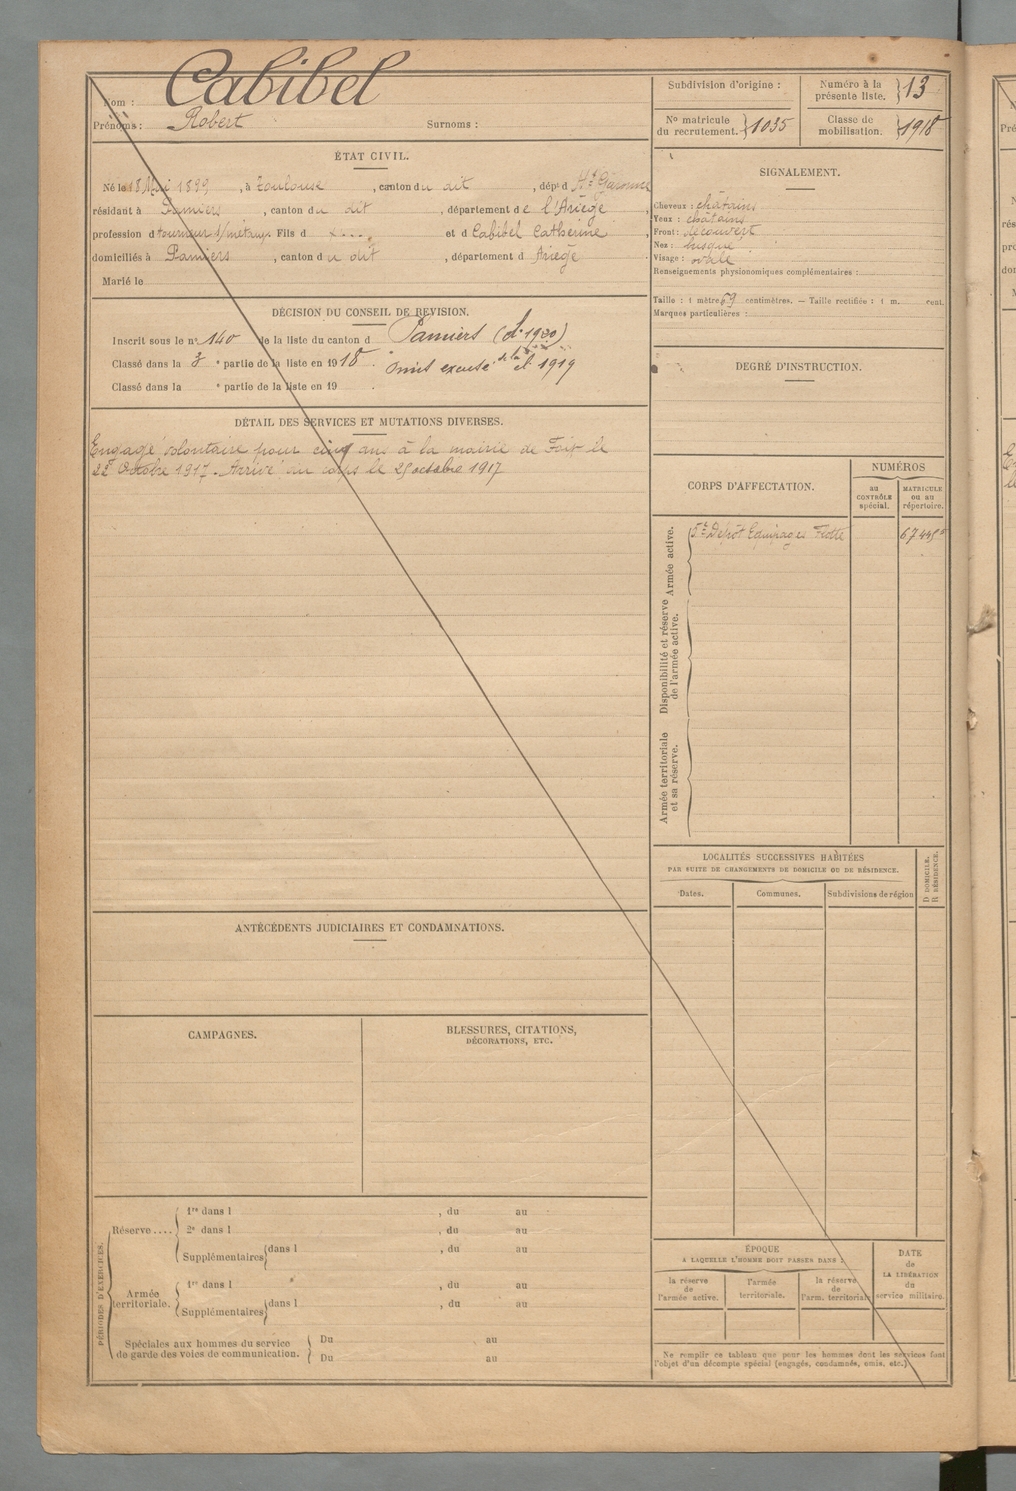 Nom : Cabibel
Prénoms : Robert Surnoms :
ÉTAT CIVIL.
Né le 18 Mai 1899, à Toulouse, canton du dit, dépt d Hte Garonne
résidant à Pamiers, canton du dit, département de l'Ariège,
profession d tourneur s/métaux Fils d et d Cabibel Catherine,
domiciliés à Pamiers, canton du dit, département d Ariège.
Marié le
DÉCISION DU CONSEIL DE REVISION.
Inscrit sous le n° 140 de la liste du canton d Pamiers (cl. 1920)
Classé dans la 3 e partie de la liste en 1918. omis excusé de la cl. 1919
Classé dans la e partie de la liste en 19 .
DÉTAIL DES SERVICES ET MUTATIONS DIVERSES.
Engagé volontaire pour cinq ans à la mairie de Foix le
22 Octobre 1917. Arrivé au corps le 25 octobre 1917
ANTÉCÉDENTS JUDICIAIRES ET CONDAMNATIONS.
CAMPAGNES.
BLESSURES, CITATIONS,
DÉCORATIONS, ETC.
PÉRIODES D'EXERCICES.
Réserve....
1re dans l , du au
2e dans l , du au
Supplémentaires dans l , du au
Armée
territoriale.
1re dans l , du au
Supplémentaires dans l , du au
Spéciales aux hommes du service
de garde des voies de communication.
Du au
Du au
Subdivision d'origine :
Numéro à la
présente liste. 13
N° matricule
du recrutement. 1035
Classe de
mobilisation. 1918
SIGNALEMENT.
Cheveux : châtains
Yeux : châtains
Front : découvert
Nez : busqué
Visage : ovale
Renseignements physionomiques complémentaires :
Taille : 1 mètre 59 centimètres. — Taille rectifiée : 1 m. cent.
Marques particulières :
DEGRÉ D'INSTRUCTION.
CORPS D'AFFECTATION.
NUMÉROS
au
CONTRÔLE
spécial.
MATRICULE
ou au
répertoire.
Armée active.
5e Dépôt Equipages Flotte
Disponibilité et réserve
de l'armée active.
Armée territoriale
et sa réserve.
LOCALITÉS SUCCESSIVES HABITÉES
PAR SUITE DE CHANGEMENTS DE DOMICILE OU DE RÉSIDENCE.
Dates.
Communes.
Subdivisions de région
D DOMICILE.
R RÉSIDENCE.
ÉPOQUE
A LAQUELLE L'HOMME DOIT PASSER DANS :
la réserve
de
l'armée active.
l'armée
territoriale.
la réserve
de
l'arm. territoriale
DATE
de
LA LIBÉRATION
du
service militaire.
Ne remplir ce tableau que pour les hommes dont les services font
l'objet d'un décompte spécial (engagés, condamnés, omis, etc.)